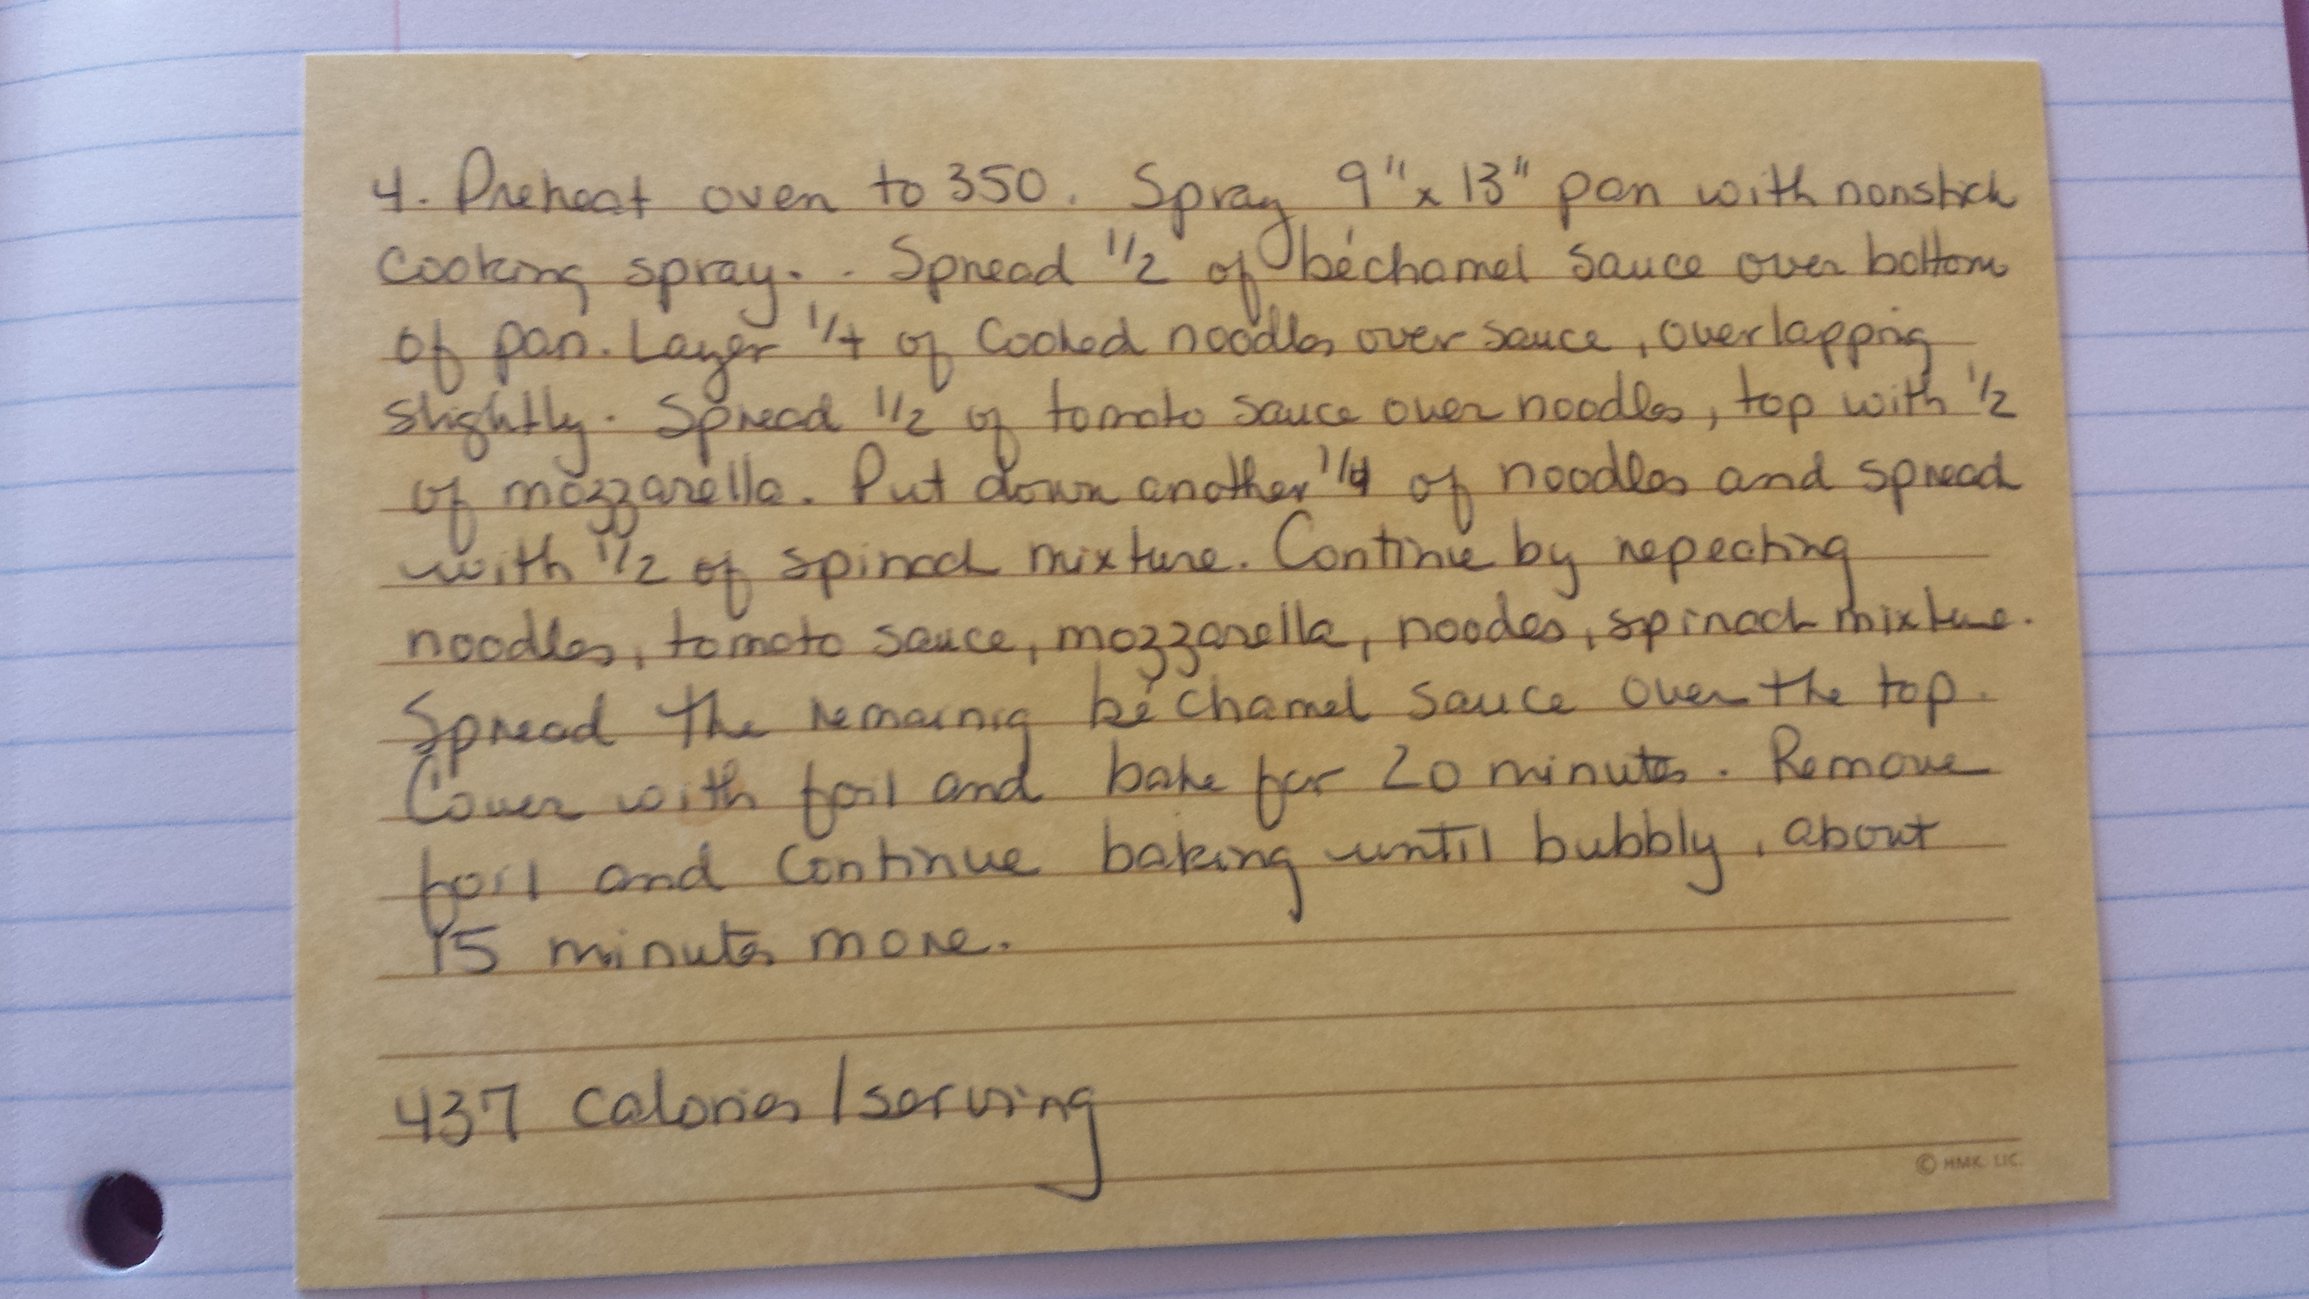 4. Preheat oven to 350. Spray 9" x 13" pan with nonstick
cooking spray. . Spread 1/2 of béchamel sauce over bottom
of pan. Layer 1/4 of cooked noodles over sauce, overlapping
slightly. Spread 1/2 of tomato sauce over noodles, top with 1/2
of mozzarella. Put down another 1/4 of noodles and spread
with 1/2 of spinach mixture. Continue by repeating
noodles, tomato sauce, mozzarella, noodes, spinach mixture.
Spread the remainig béchamel sauce over the top.
Cover with foil and bake for 20 minutes. Remove
foil and continue baking until bubbly, about
15 minutes more.
437 calories/serving
© HMK. LIC.